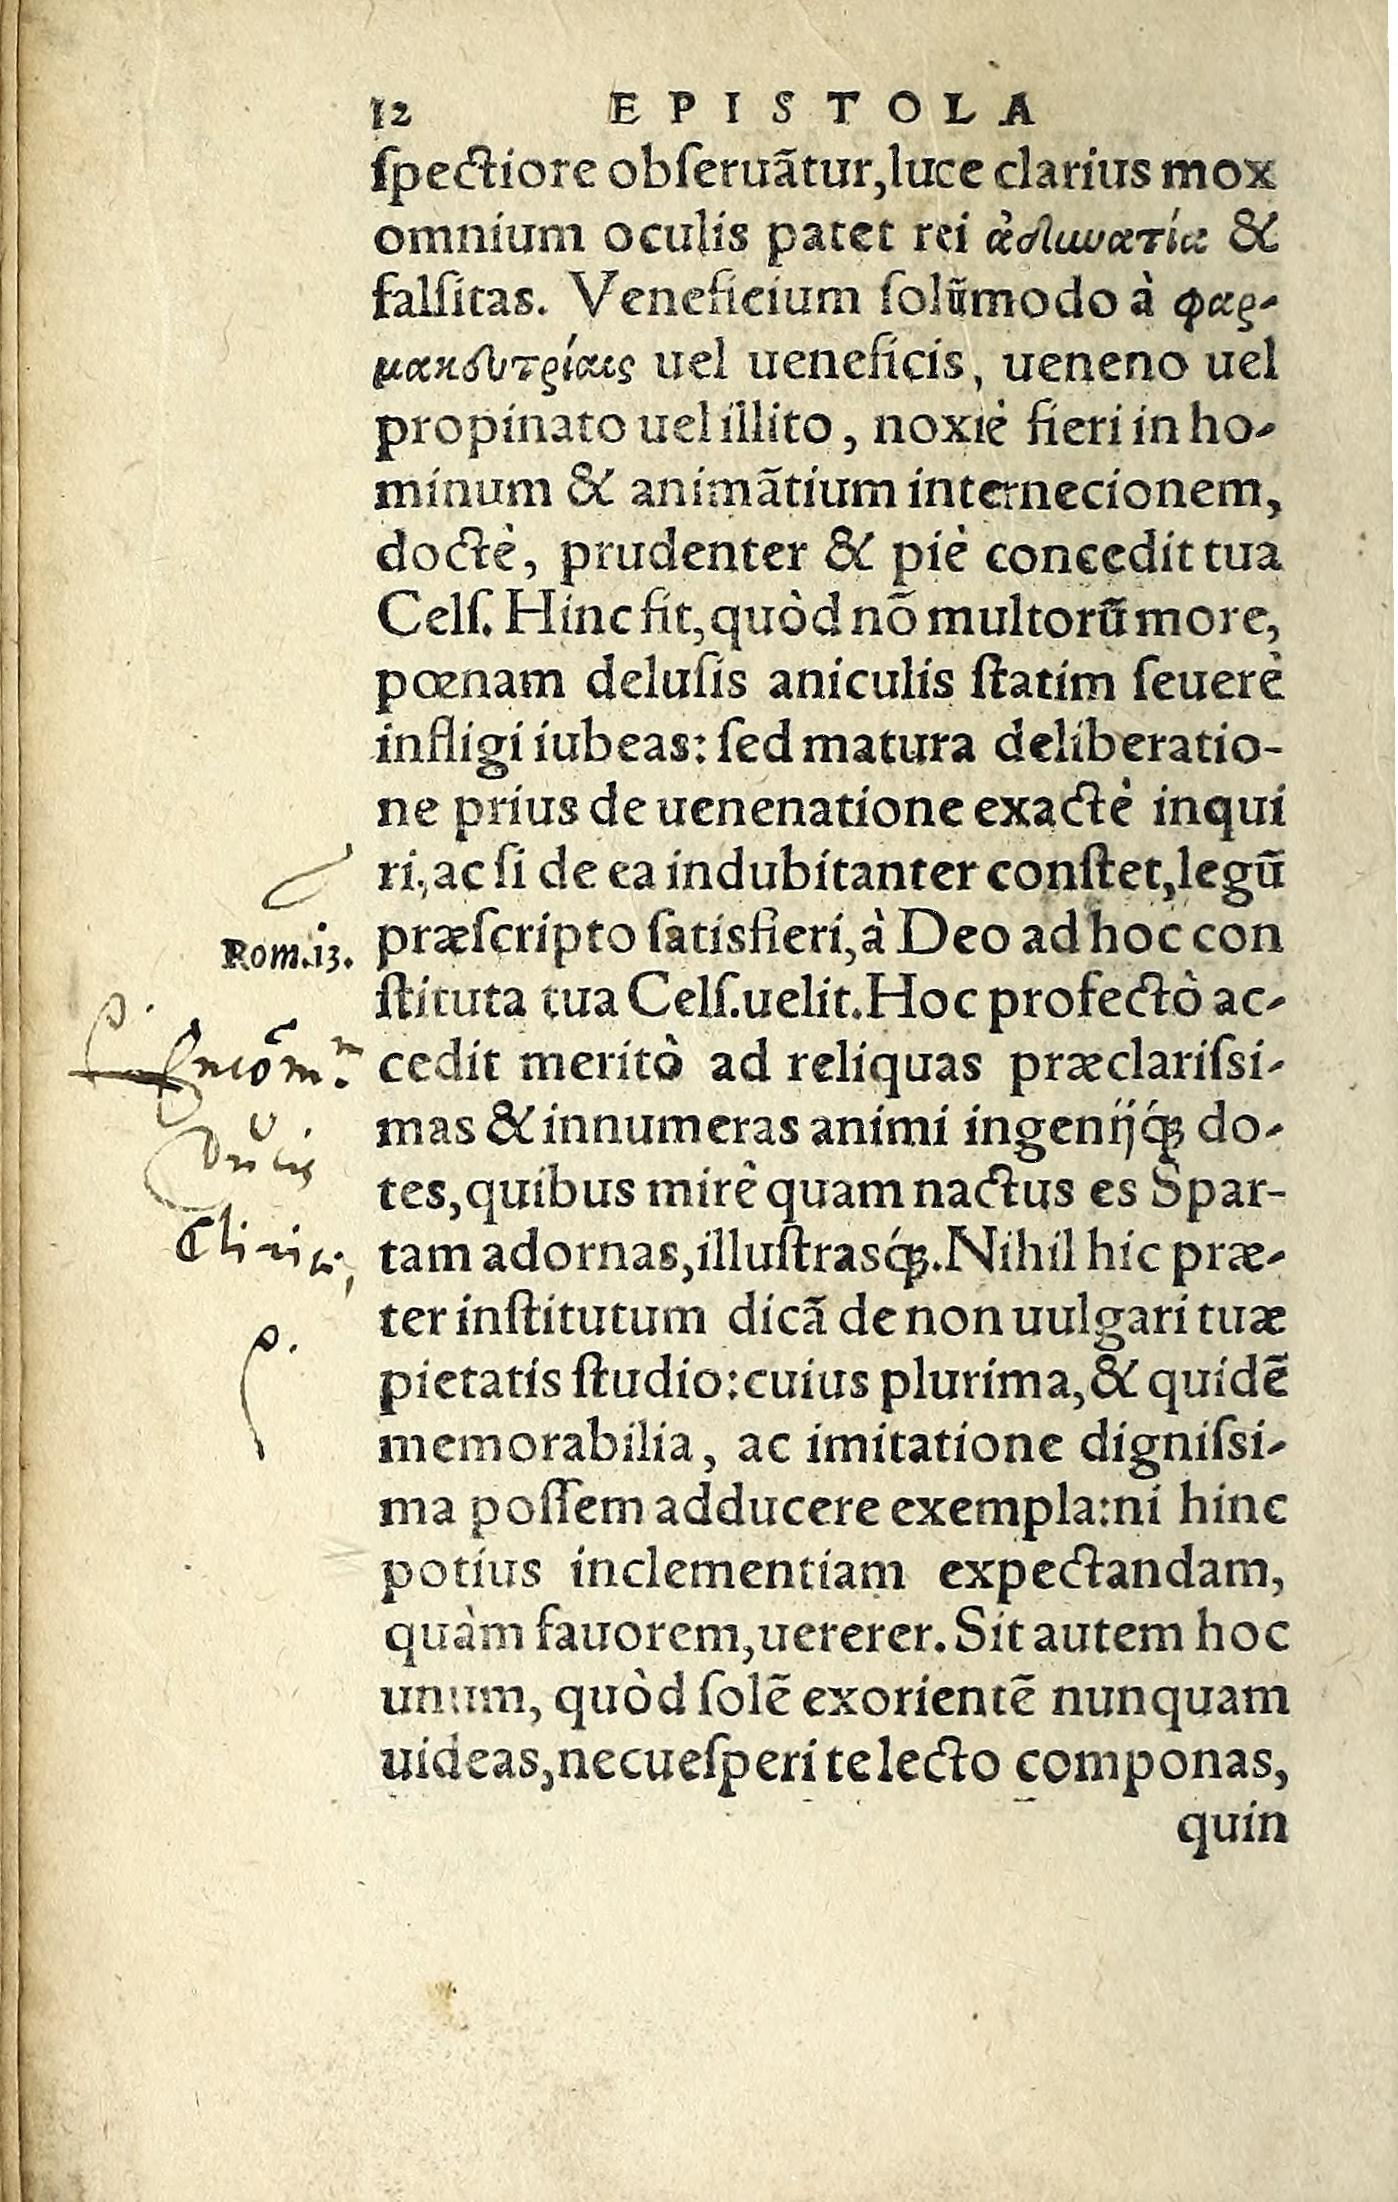 12 EPISTOLA
ſpectiore obſeruãtur, luce clarius mox
omnium oculis patet rei ἀδιυνατία &
falſitas. Veneficium ſolũmodo à φαρ-
μακουτρίαις uel ueneficis, ueneno uel
propinato uel illito, noxiè fieri in ho-
minum & animãtium internecionem,
doctè, prudenter & piè concedit tua
Celſ. Hinc fit, quòd nõ multorũ more,
pœnam deluſis aniculis ſtatim ſeuerè
infligi iubeas: ſed matura deliberatio-
ne prius de uenenatione exactè inqui
ri, ac ſi de ea indubitanter conſtet, legũ
Rom. 13.
præſcripto ſatisfieri, à Deo ad hoc con
ſtituta tua Celſ. uelit. Hoc profectò ac-
Encõm.m
cedit meritò ad reliquas præclariſsi-
mas & innumeras animi ingenijq́; do-
Ducis
tes, quibus mirè quam nactus es Spar-
tam adornas, illuſtrasq́;. Nihil hic præ-
ter inſtitutum dicã de non uulgari tuæ
pietatis ſtudio: cuius plurima, & quidẽ
memorabilia, ac imitatione digniſsi-
ma poſſem adducere exempla: ni hinc
potius inclementiam expectandam,
quàm fauorem, uererer. Sit autem hoc
unum, quòd ſolẽ exorientẽ nunquam
uideas, nec ueſperi te lecto componas,
quin